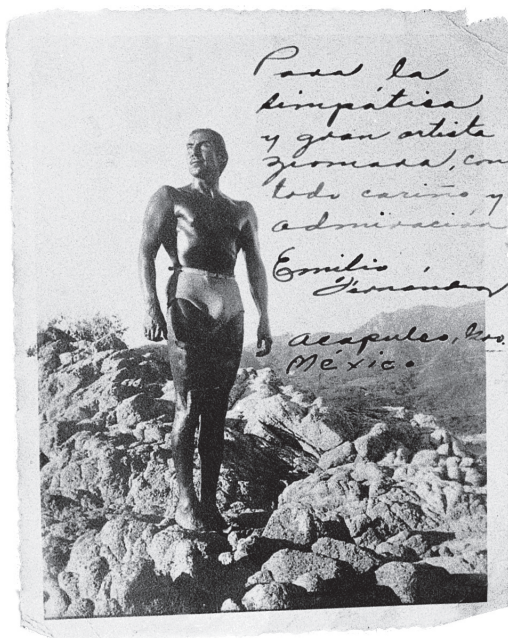 Para la
simpática
y gran artista
Xiomara, con
todo cariño y
admiración
Emilio
Fernández
Acapulco, Gro.
México